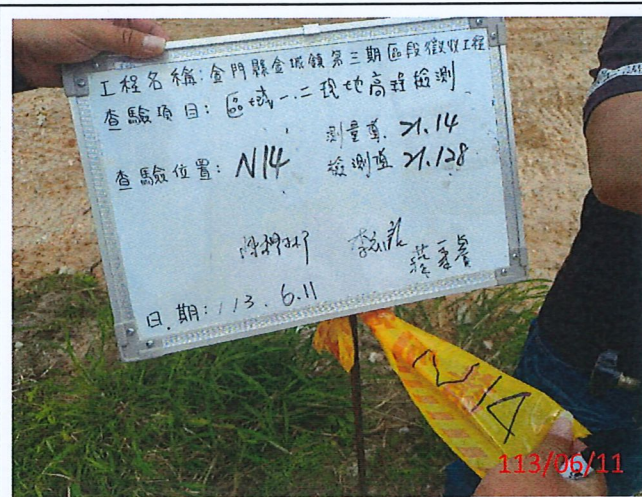 工程名稱:金門縣金城鎮第三期區段徵收工程
查驗項目:區域一.二現地高程檢測
測量值. 21.14
查驗位置: N14
檢測值 21.128
日.期:113.6.11
N14
113/06/11